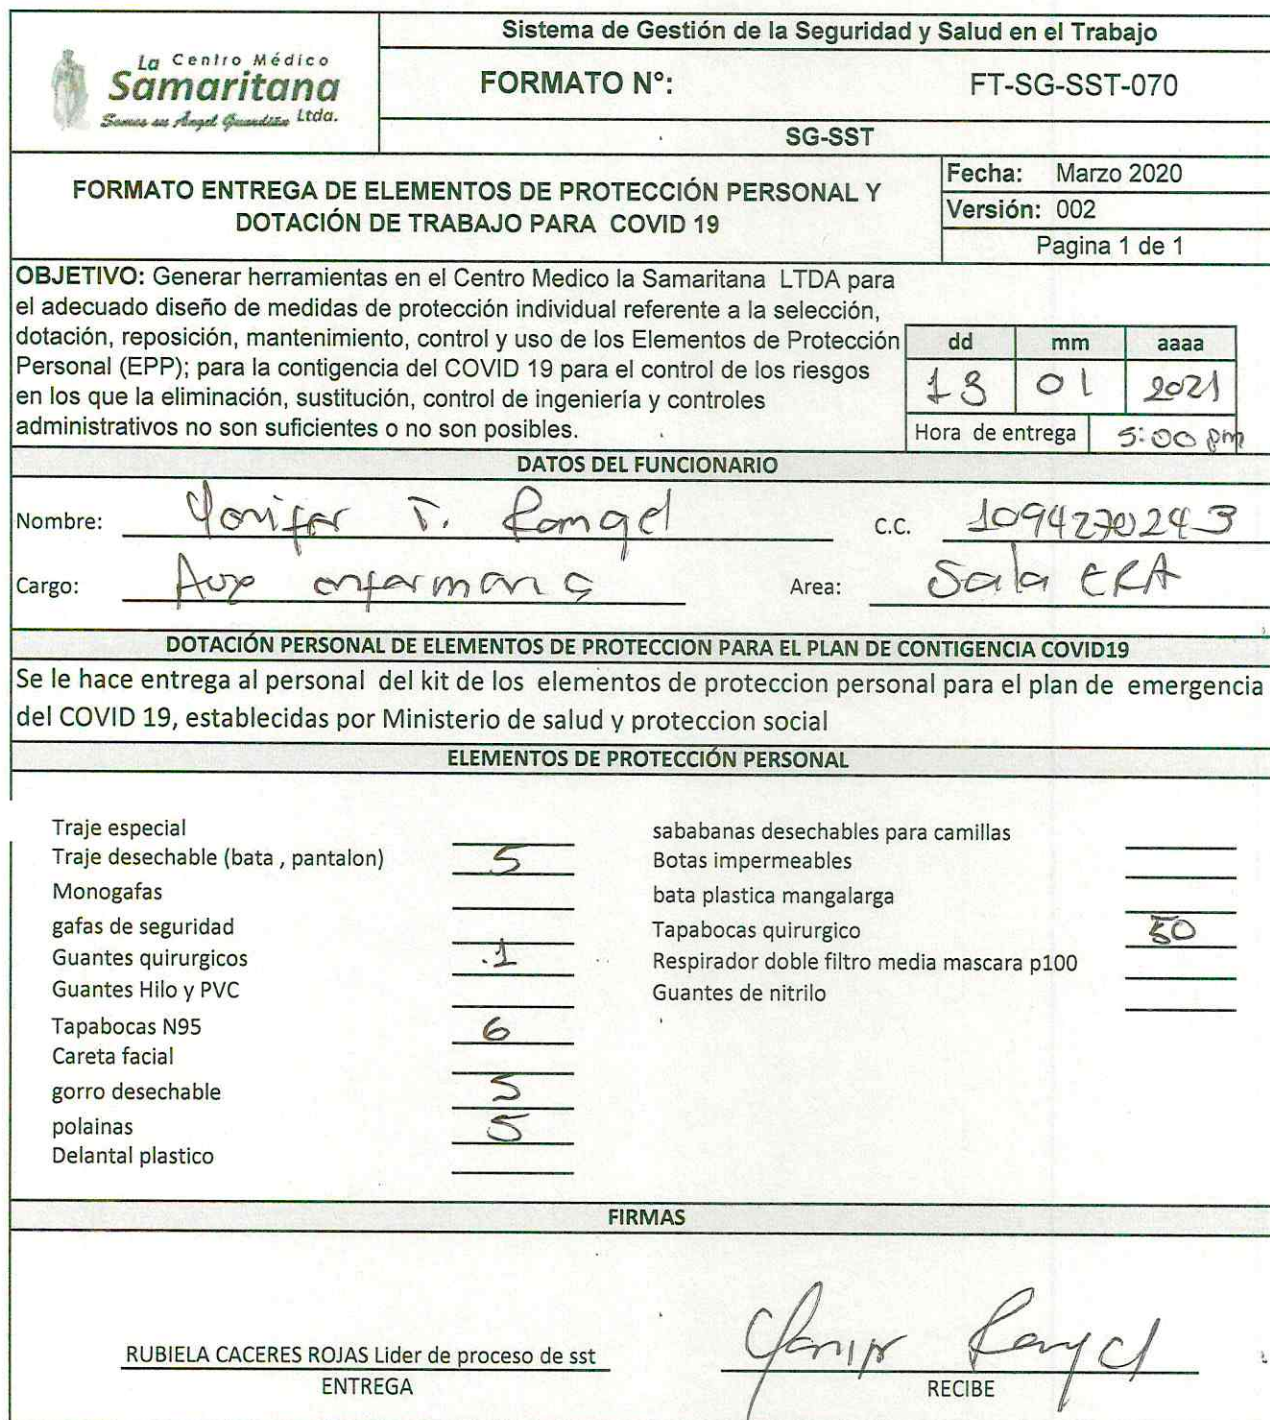 La Centro Médico
Samaritana
Somos su Ángel Guardián Ltda.
Sistema de Gestión de la Seguridad y Salud en el Trabajo
FORMATO N°: FT-SG-SST-070
SG-SST
FORMATO ENTREGA DE ELEMENTOS DE PROTECCIÓN PERSONAL Y
DOTACIÓN DE TRABAJO PARA COVID 19
Fecha: Marzo 2020
Versión: 002
Pagina 1 de 1
OBJETIVO: Generar herramientas en el Centro Medico la Samaritana LTDA para
el adecuado diseño de medidas de protección individual referente a la selección,
dotación, reposición, mantenimiento, control y uso de los Elementos de Protección
Personal (EPP); para la contigencia del COVID 19 para el control de los riesgos
en los que la eliminación, sustitución, control de ingeniería y controles
administrativos no son suficientes o no son posibles.
dd mm aaaa
13 01 2021
Hora de entrega 5:00 pm
DATOS DEL FUNCIONARIO
Nombre: Yenifer T. Rangel C.C. 1094270243
Cargo: Aux enfermeria Area: Sala ERA
DOTACIÓN PERSONAL DE ELEMENTOS DE PROTECCION PARA EL PLAN DE CONTIGENCIA COVID19
Se le hace entrega al personal del kit de los elementos de proteccion personal para el plan de emergencia
del COVID 19, establecidas por Ministerio de salud y proteccion social
ELEMENTOS DE PROTECCIÓN PERSONAL
Traje especial
Traje desechable (bata , pantalon) 5
Monogafas
gafas de seguridad
Guantes quirurgicos 1
Guantes Hilo y PVC
Tapabocas N95 6
Careta facial
gorro desechable 5
polainas 5
Delantal plastico
sababanas desechables para camillas
Botas impermeables
bata plastica mangalarga
Tapabocas quirurgico 50
Respirador doble filtro media mascara p100
Guantes de nitrilo
FIRMAS
RUBIELA CACERES ROJAS Lider de proceso de sst
ENTREGA
Rangel
RECIBE